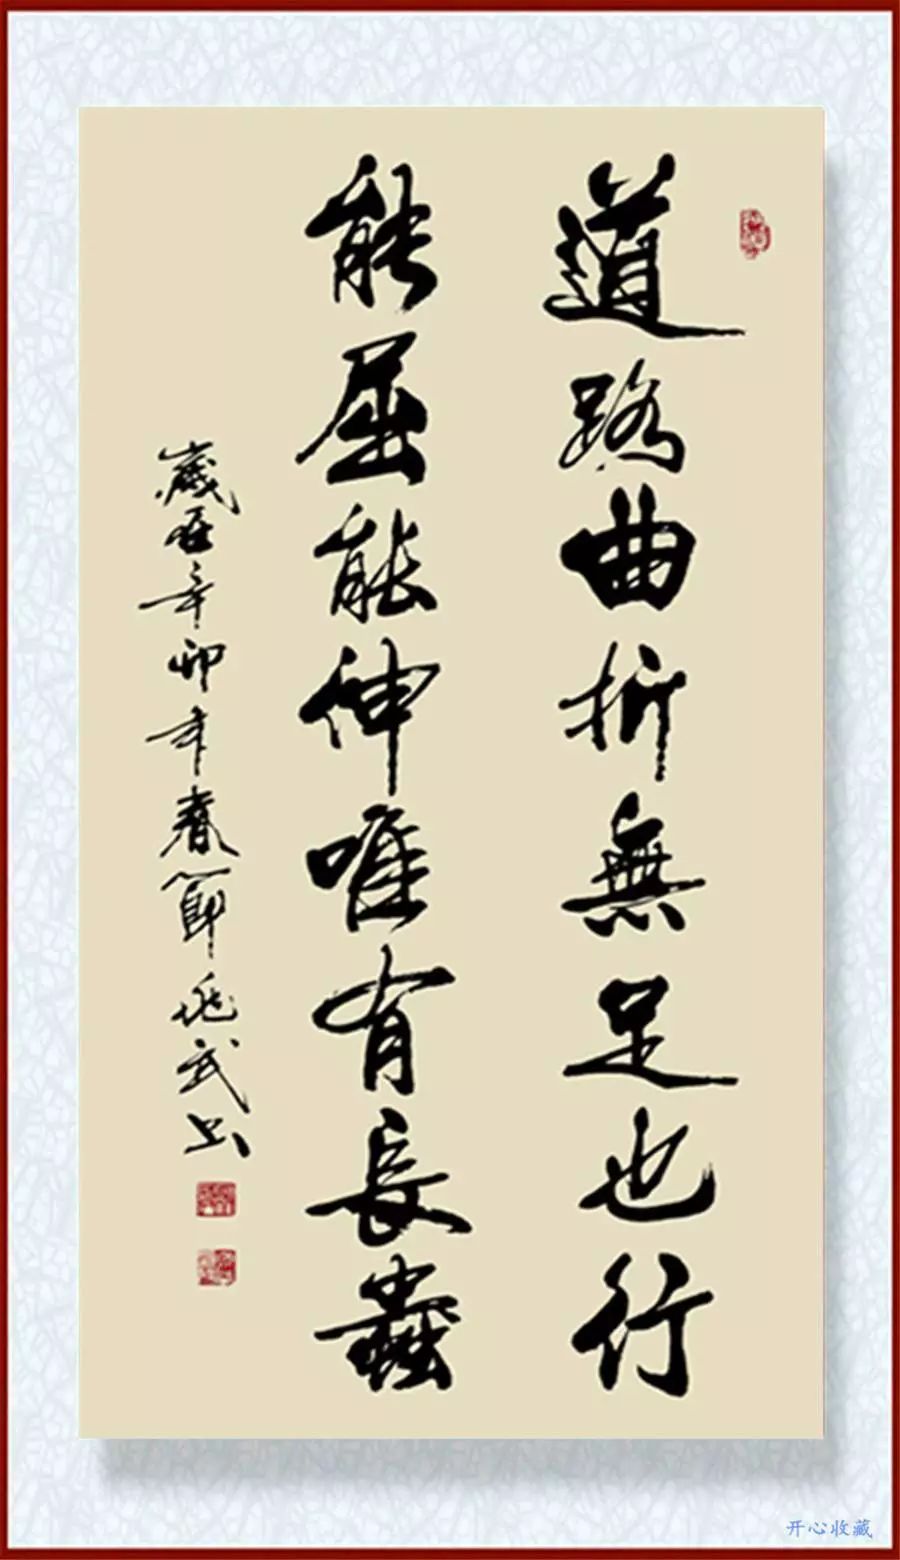 道路曲折無足也行
能屈能伸唯有長蟲
歲在辛卯年春節 武書
开心收藏